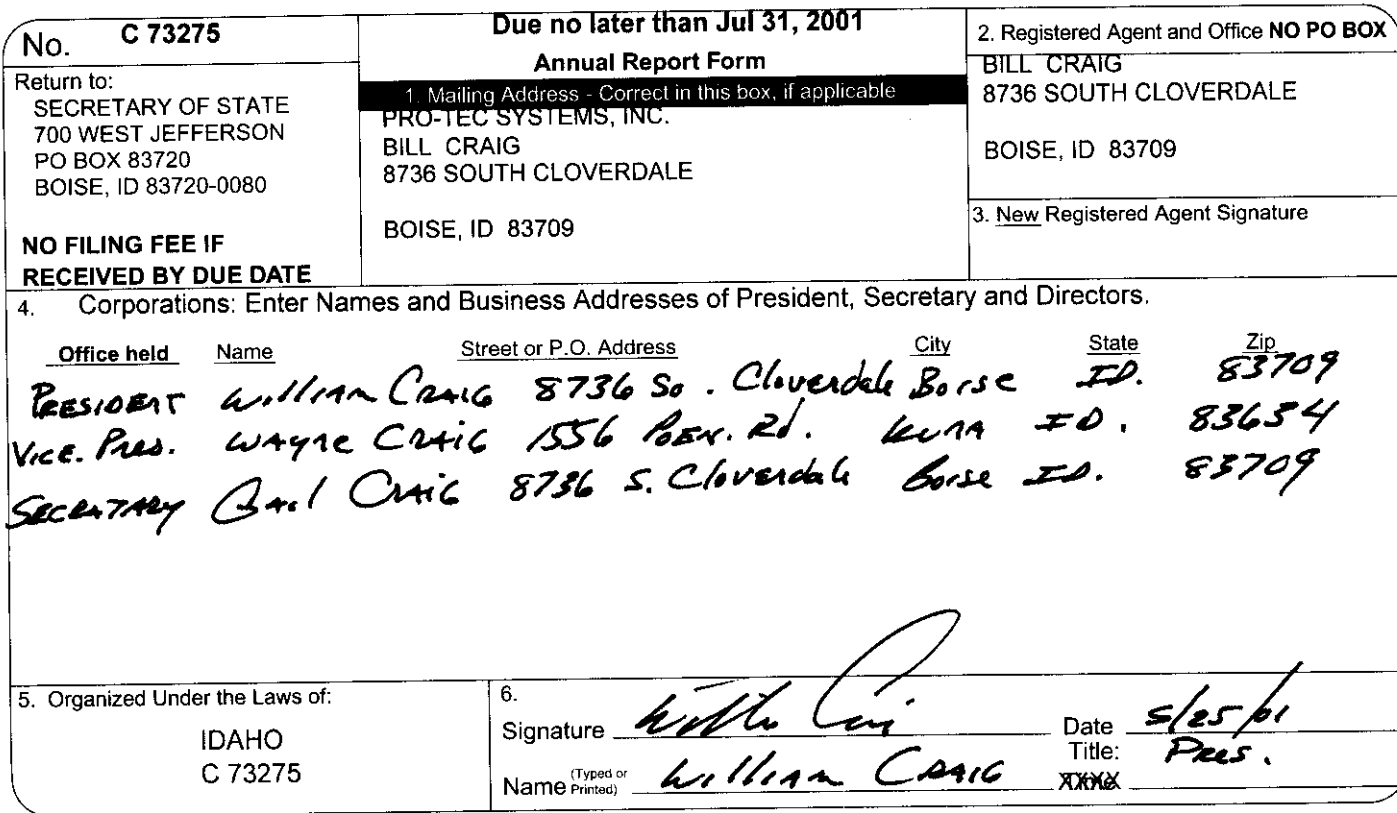 No. C 73275
Return to:
SECRETARY OF STATE
700 WEST JEFFERSON
PO BOX 83720
BOISE, ID 83720-0080
NO FILING FEE IF
RECEIVED BY DUE DATE
Due no later than Jul 31, 2001
Annual Report Form
1. Mailing Address - Correct in this box, if applicable
PRO-TEC SYSTEMS, INC.
BILL CRAIG
8736 SOUTH CLOVERDALE
BOISE, ID 83709
2. Registered Agent and Office NO PO BOX
BILL CRAIG
8736 SOUTH CLOVERDALE
BOISE, ID 83709
3. New Registered Agent Signature
4. Corporations: Enter Names and Business Addresses of President, Secretary and Directors.
Office held Name Street or P.O. Address City State Zip
PRESIDENT William CRAIG 8736 So. Cloverdale Boise ID. 83709
Vice. Pres. WAYNE CRAIG 1556 Rd. KUNA ID. 83634
SECRETARY Gail CRAIG 8736 S. Cloverdale Boise ID. 83709
5. Organized Under the Laws of:
IDAHO
C 73275
6.
Signature Date 5/25/01
Title: Pres.
Name (Typed or Printed) William CRAIG